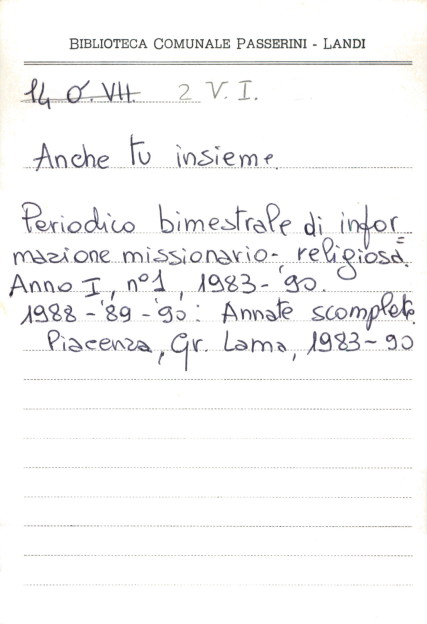 BIBLIOTECA COMUNALE PASSERINI - LANDI
14 O'. VII. 2 V. I.
Anche tu insieme.
Periodico bimestrale di infor=
mazione missionario- religiosa.
Anno I, n°1, 1983-'90.
1988-'89-'90: Annate scomplete.
Piacenza, Gr. Lama, 1983-90